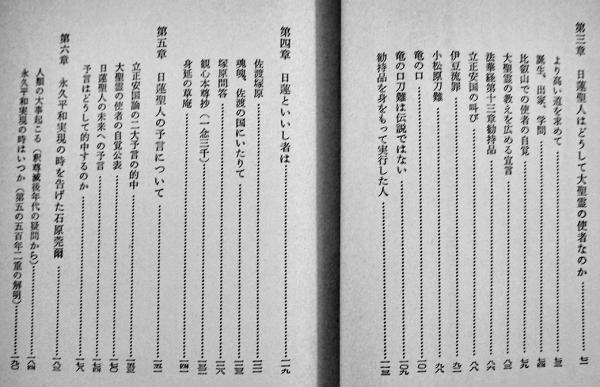 第三章 日蓮聖人はどうして大聖霊の使者なのか
より高い道を求めて
誕生、出家、学問
比叡山での使者の自覚
大聖霊の教えを広める宣言
法華経第十三章勧持品
立正安国の叫び
伊豆流罪
小松原刀難
竜の口 一〇一
竜の口刀難は伝説ではない 一〇九
勧持品を身をもって実行した人 一一三
第四章 日蓮といいし者は 一一九
佐渡塚原 一二一
魂魄、佐渡の国にいたりて 一二三
塚原問答 一二六
観心本尊抄（一念三千） 一三一
身延の草庵 一四一
第五章 日蓮聖人の予言について 一五一
立正安国論の二大予言の的中 一五三
大聖霊の使者の自覚公表
日蓮聖人の未来への予言
予言はどうして的中するのか
第六章 永久平和実現の時を告げた石原莞爾
人類の大事起こる（釈尊滅後年代の疑問から）
永久平和実現の時はいつか（第五の五百年二重の解明）